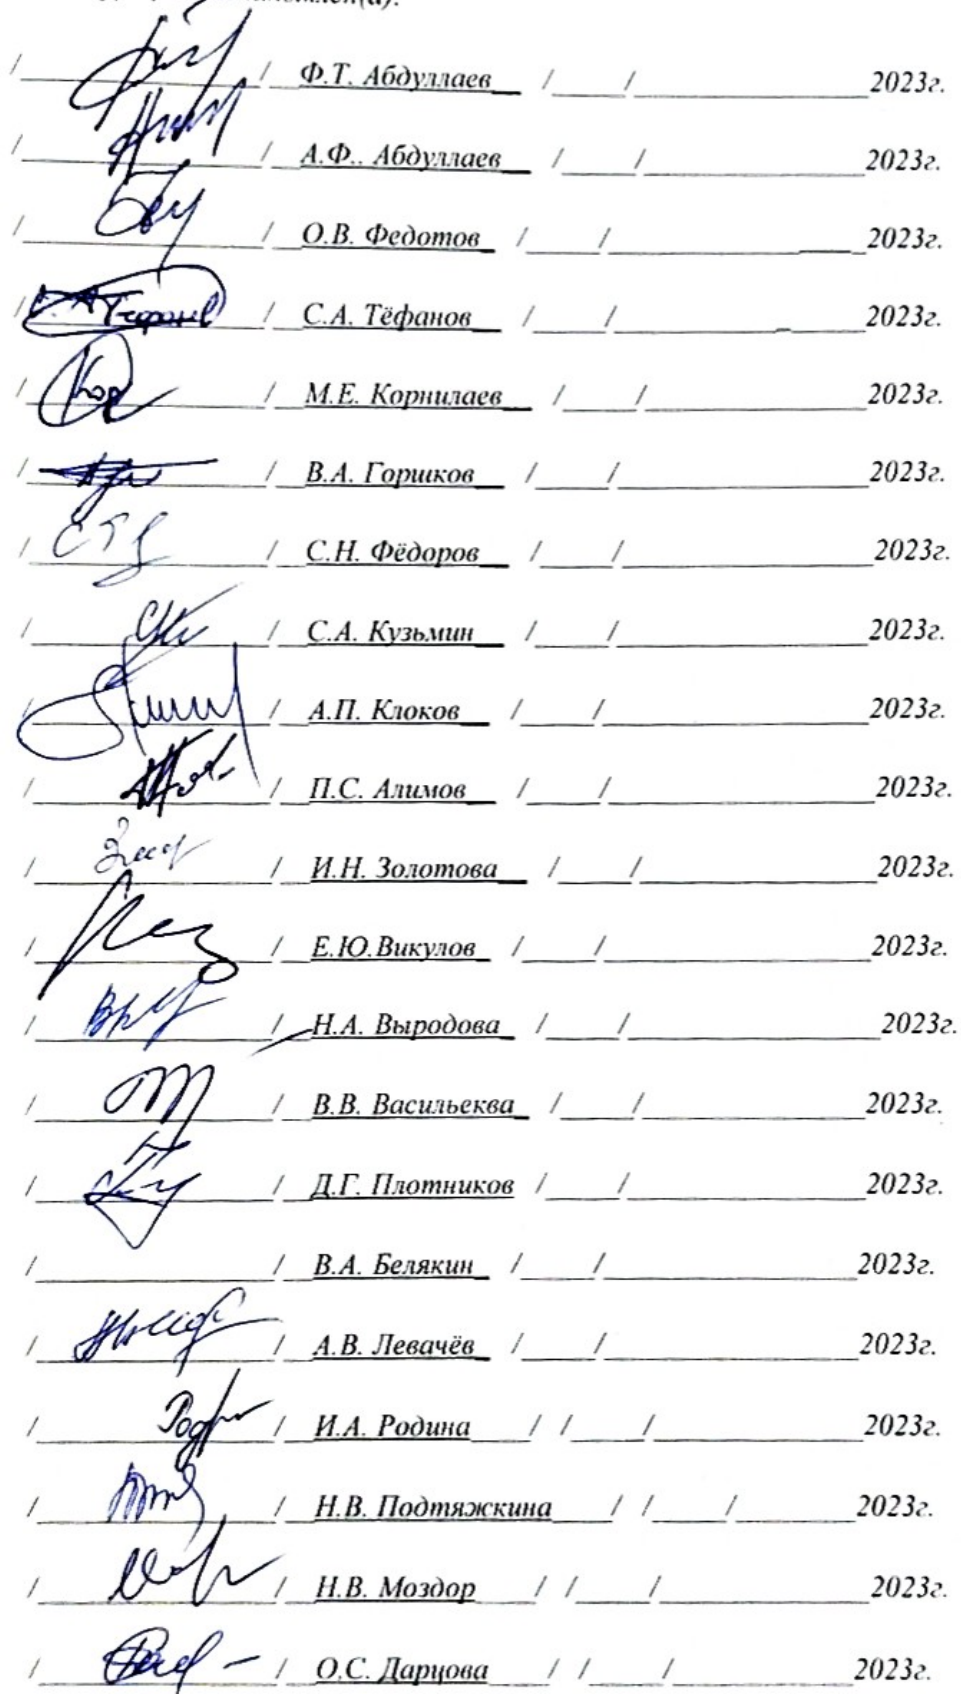 / / Ф.Т. Абдуллаев / / 2023г.
/ / А.Ф.. Абдуллаев / / 2023г.
/ / О.В. Федотов / / 2023г.
/ / С.А. Тёфанов / / 2023г.
/ / М.Е. Корнилаев / / 2023г.
/ / В.А. Горшков / / 2023г.
/ / С.Н. Фёдоров / / 2023г.
/ / С.А. Кузьмин / / 2023г.
/ / А.П. Клоков / / 2023г.
/ / П.С. Алимов / / 2023г.
/ / И.Н. Золотова / / 2023г.
/ / Е.Ю.Викулов / / 2023г.
/ / Н.А. Выродова / / 2023г.
/ / В.В. Васильеква / / 2023г.
/ / Д.Г. Плотников / / 2023г.
/ / В.А. Белякин / / 2023г.
/ / А.В. Левачёв / / 2023г.
/ / И.А. Родина / / / 2023г.
/ / Н.В. Подтяжкина / / / 2023г.
/ / Н.В. Моздор / / / 2023г.
/ / О.С. Дарцова / / / 2023г.